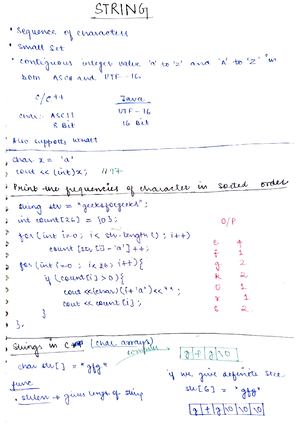 STRING
• Sequence of characters
• Small Set
• Contiguous integer value 'a' to 'z' and 'A' to 'Z' in
both ASCII and UTF-16
C/C++ Java
char:- ASCII UTF-16
8 Bit 16 Bit
• Also supports
char x = 'a'
cout << (int)x; // 97
• Print the frequencies of character in sorted order
string str = "geeksforgeeks";
int count[26] = {0};
for (int i=0; i< str.length(); i++)
count [str[i]-'a']++;
for (int i=0; i<26; i++){
if (count[i] >0){
cout <<(char)(i+'a')<<" ";
cout << count[i];
}
}.
O/P
e 4
f 1
g 2
k 2
o 1
r 1
s 2
Strings in C++ (char arrays)
char str[] = "gfg"
g f g \0
func
• strlen → gives length of string
if we give definite size
str[6] = "gfg"
g f g \0 \0 \0